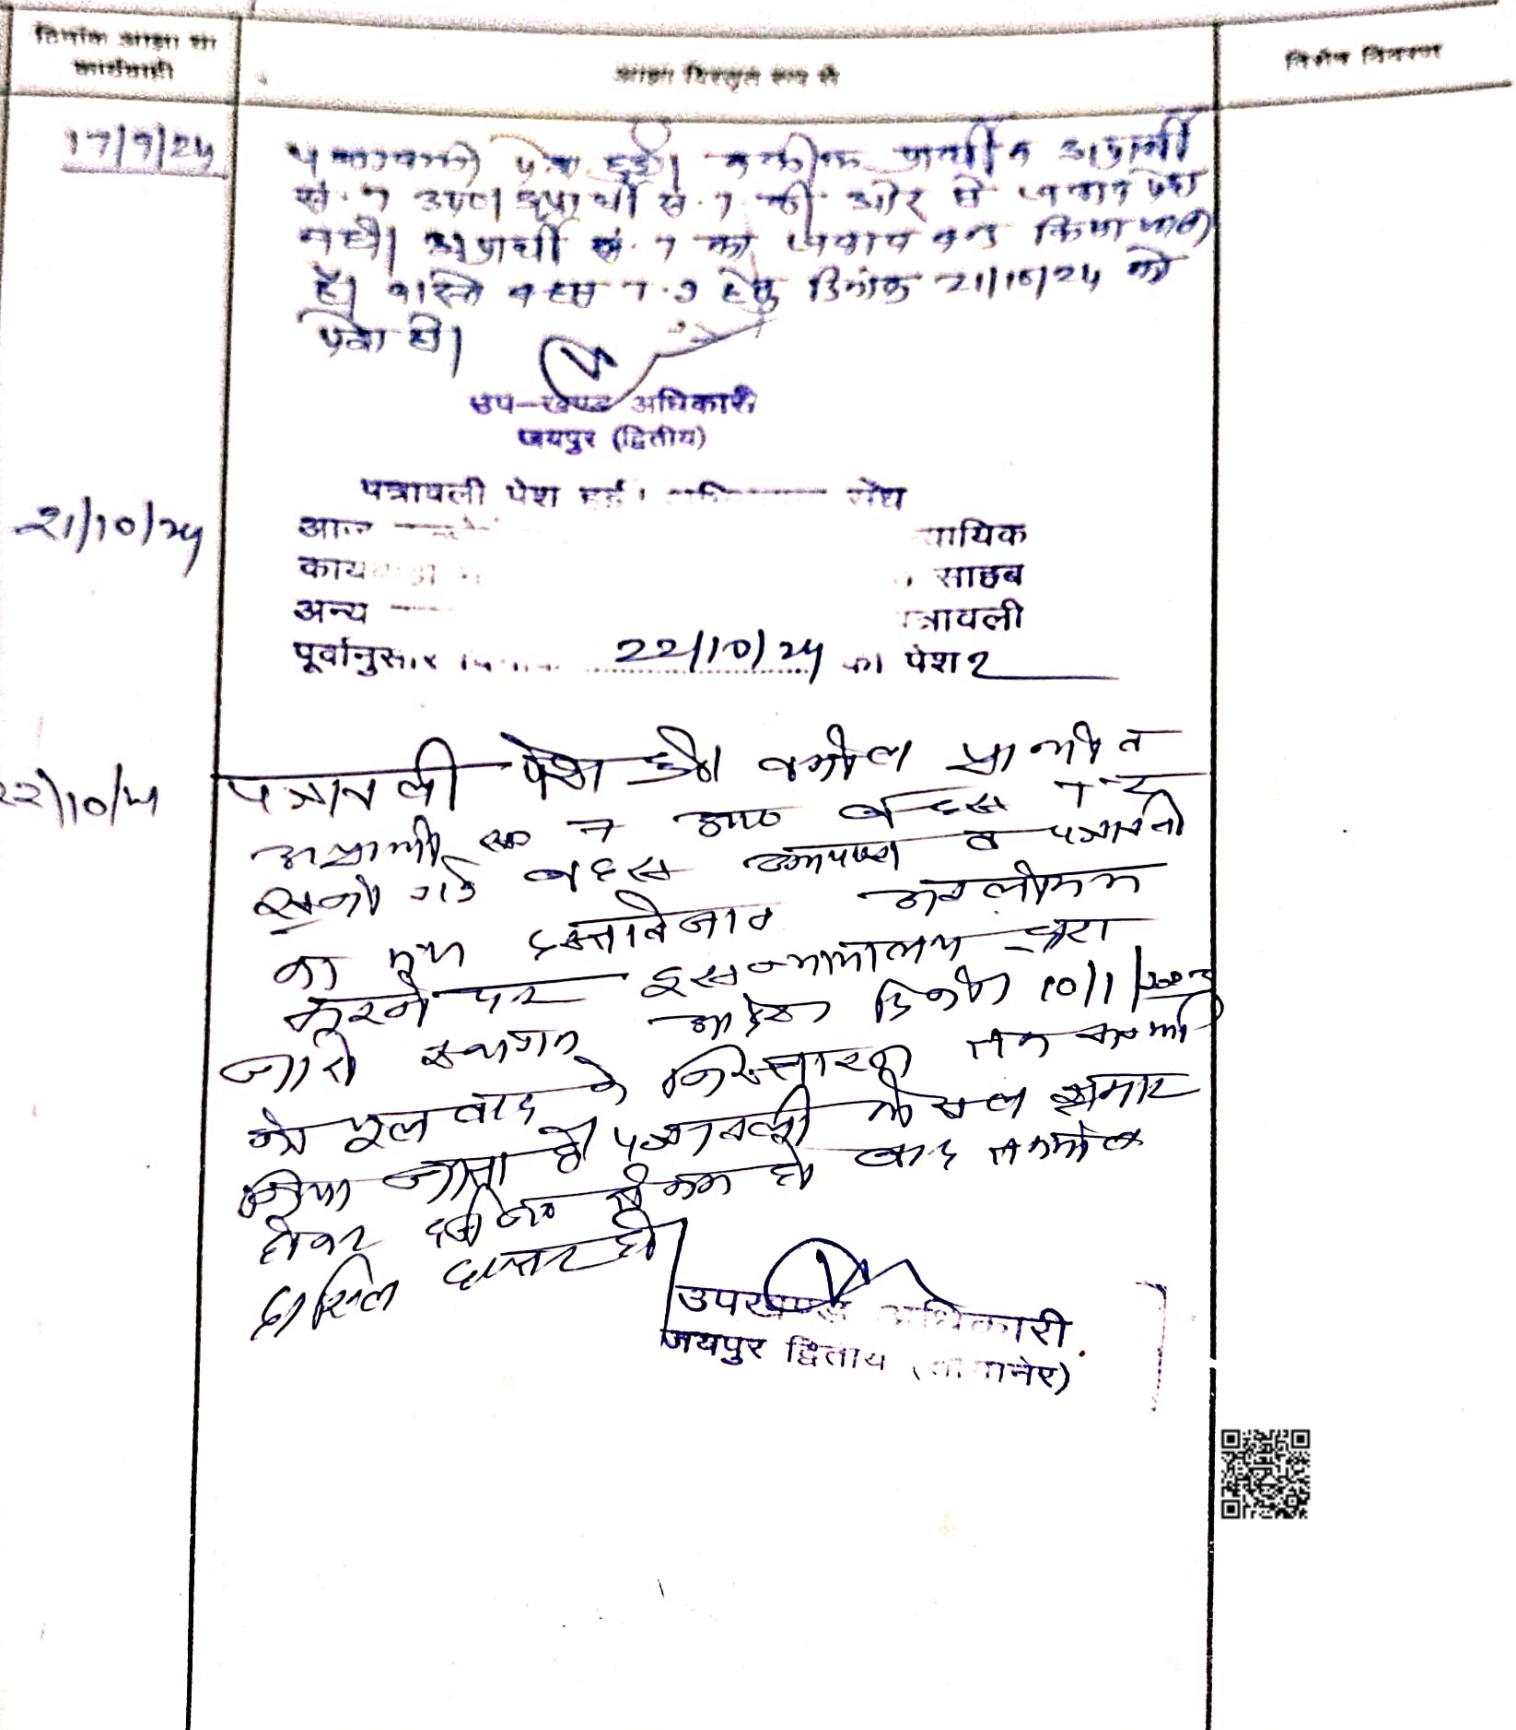 दिनांक आज्ञा या
कार्यवाही
आज्ञा विस्तृत रूप से
विशेष विवरण
17/9/24
पत्रावली पेश हुई। वकील प्रार्थी व अप्रार्थी
सं. 7 उप0। अप्रार्थी सं. 7 की ओर से जवाब पेश
नहीं। अप्रार्थी सं. 7 का जवाब बन्द किया जाता
है। वास्ते बहस T.I हेतु दिनांक 21/10/24 को
पेश हो।
उप-खण्ड अधिकारी
जयपुर (द्वितीय)
21/10/24
पत्रावली पेश हुई।
आज
साहब
अन्य
पत्रावली
पूर्वानुसार 22/10/24 को पेश
22/10/24
पत्रावली पेश हुई। वकील प्रार्थी व
अप्रार्थी उप0 बहस
सुनी गई बहस व पत्रावली
का मय दस्तावेजात अवलोकन
करने पर इस न्यायालय द्वारा
जारी स्थगन आदेश दिनांक 10/1/
को मूल वाद के निस्तारण तक
किया जाता है। पत्रावली फैसल शुमार
होकर से कम हो बाद तकमील
दाखिल दफ्तर हो।
उपखण्ड अधिकारी
जयपुर द्वितीय (सांगानेर)